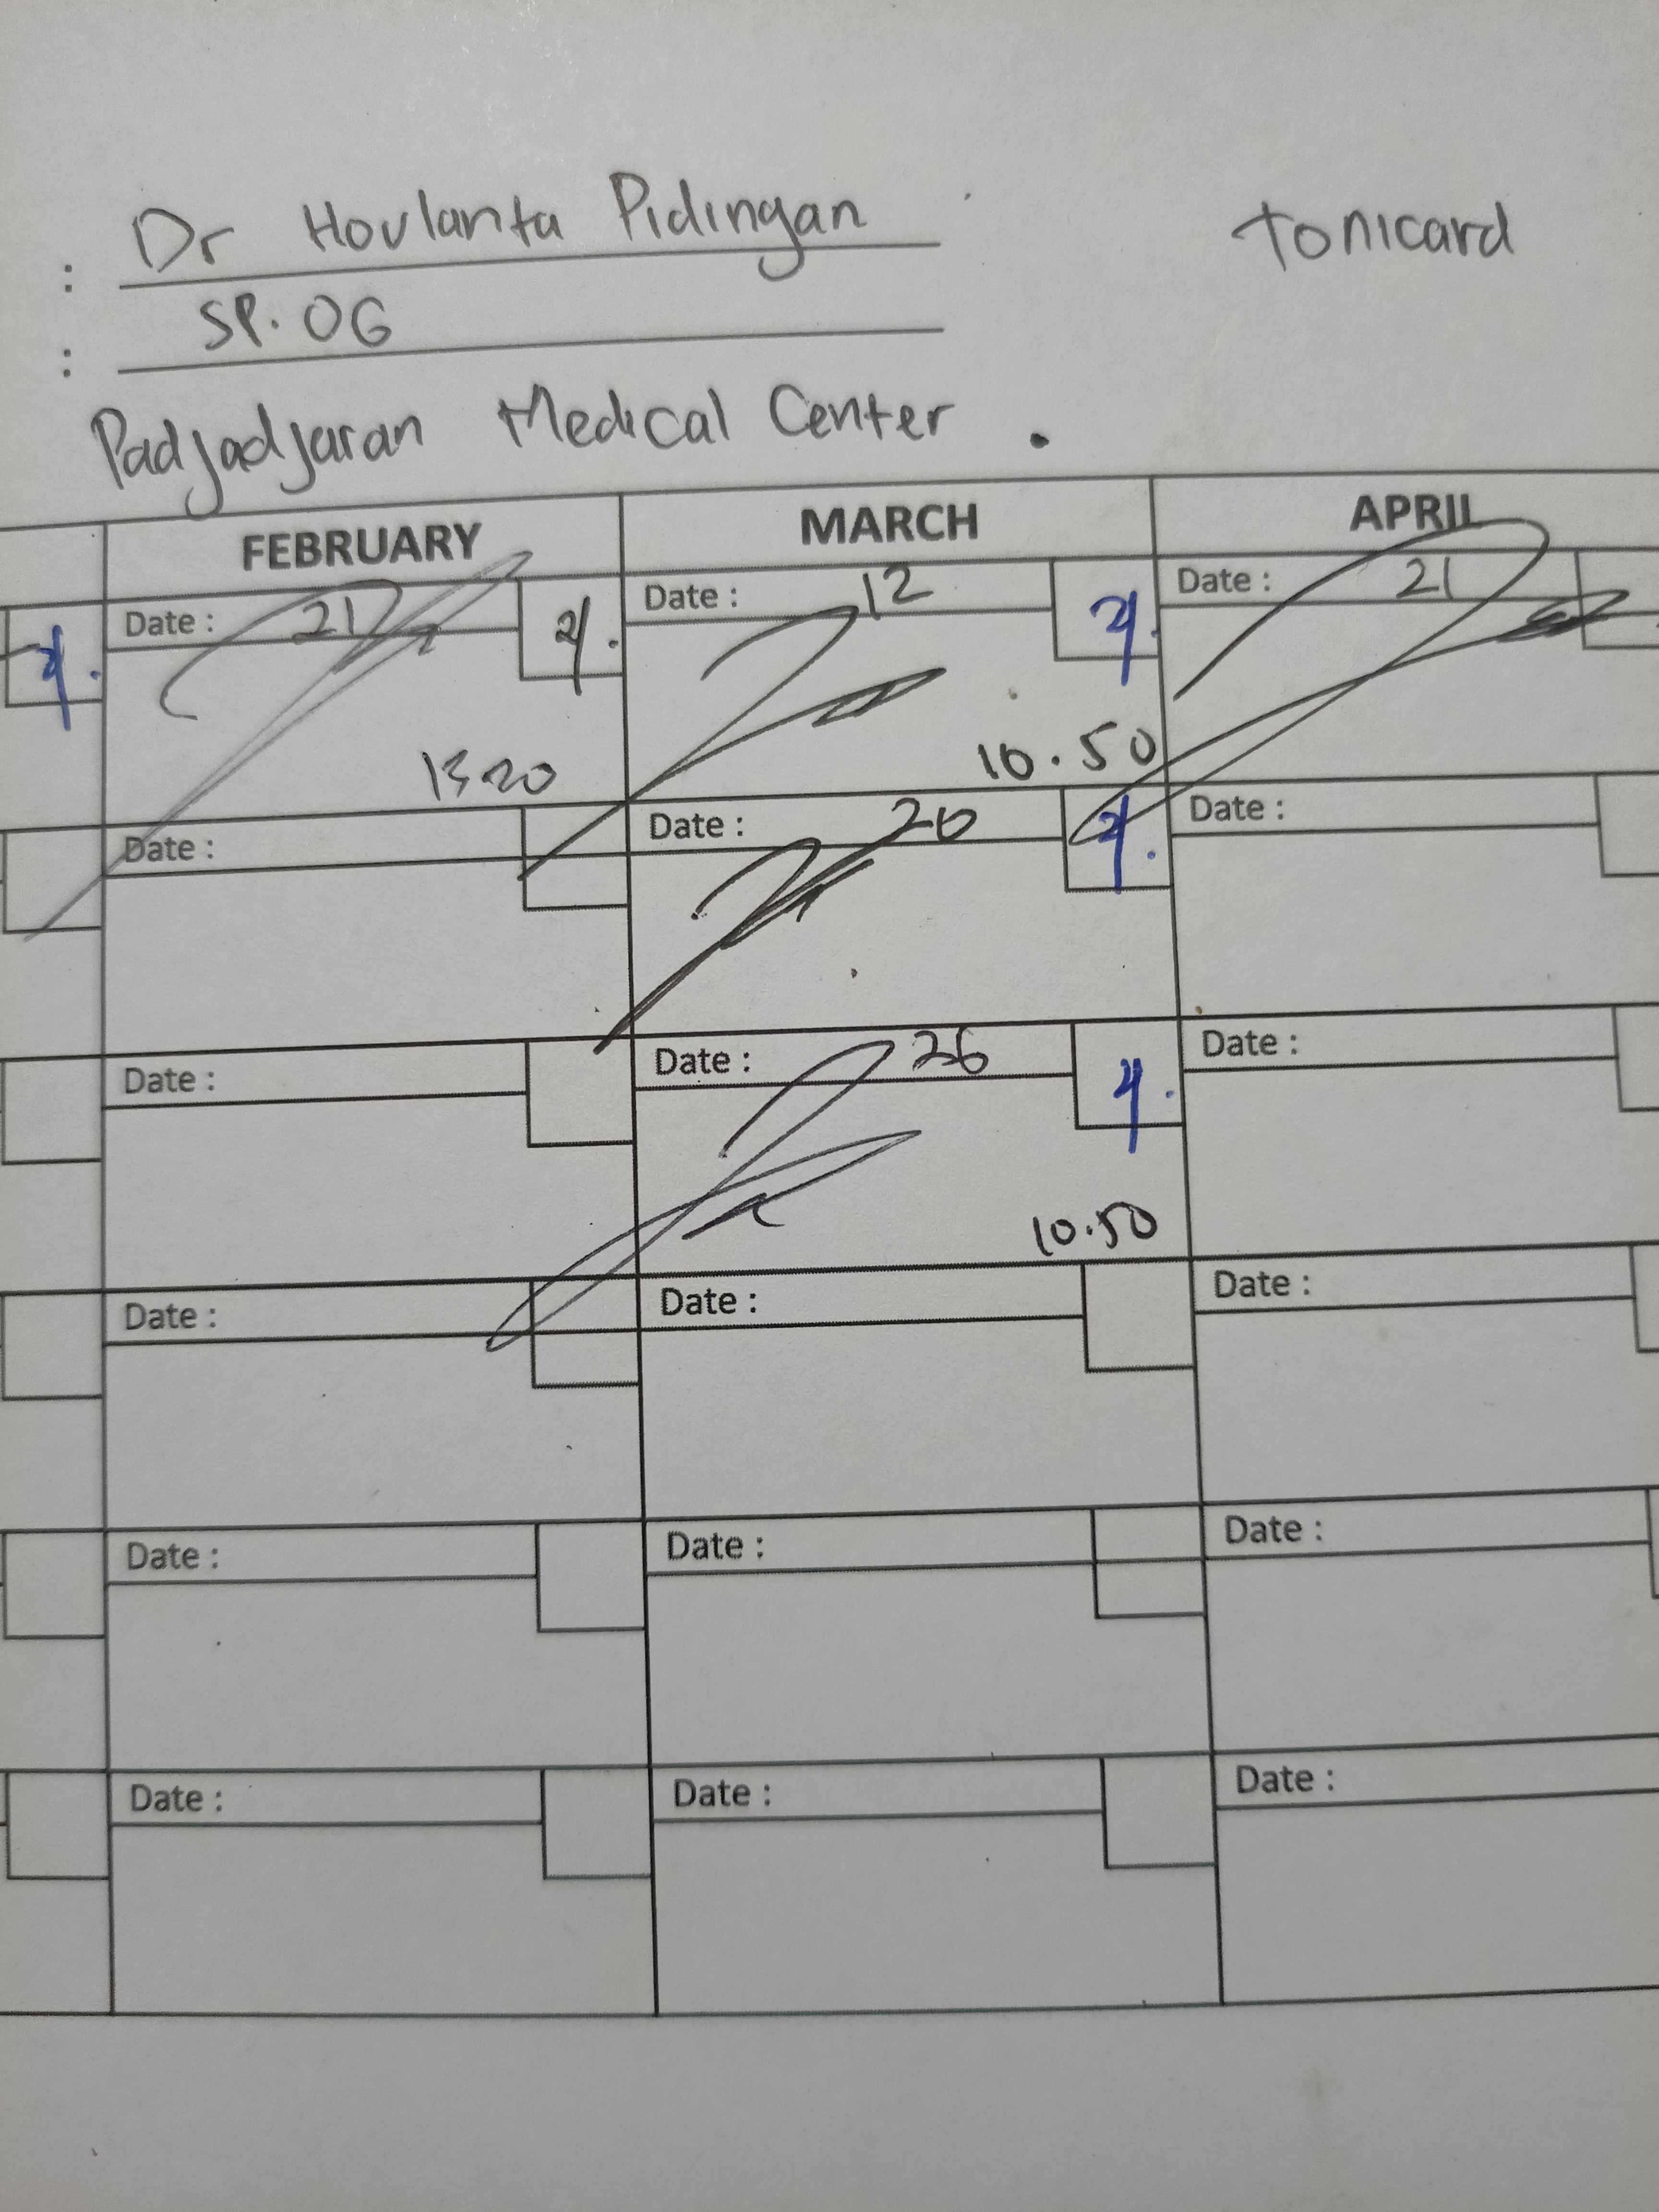 : Dr Hovlanta Pidingan
tonicard
: SP. OG
Padjadjaran Medical Center .
FEBRUARY MARCH APRIL
Date : 21 Date : 12 Date : 21
1320 10.50
Date : Date : 20 Date :
Date : Date : 26 Date :
10.50
Date : Date : Date :
Date : Date : Date :
Date : Date : Date :